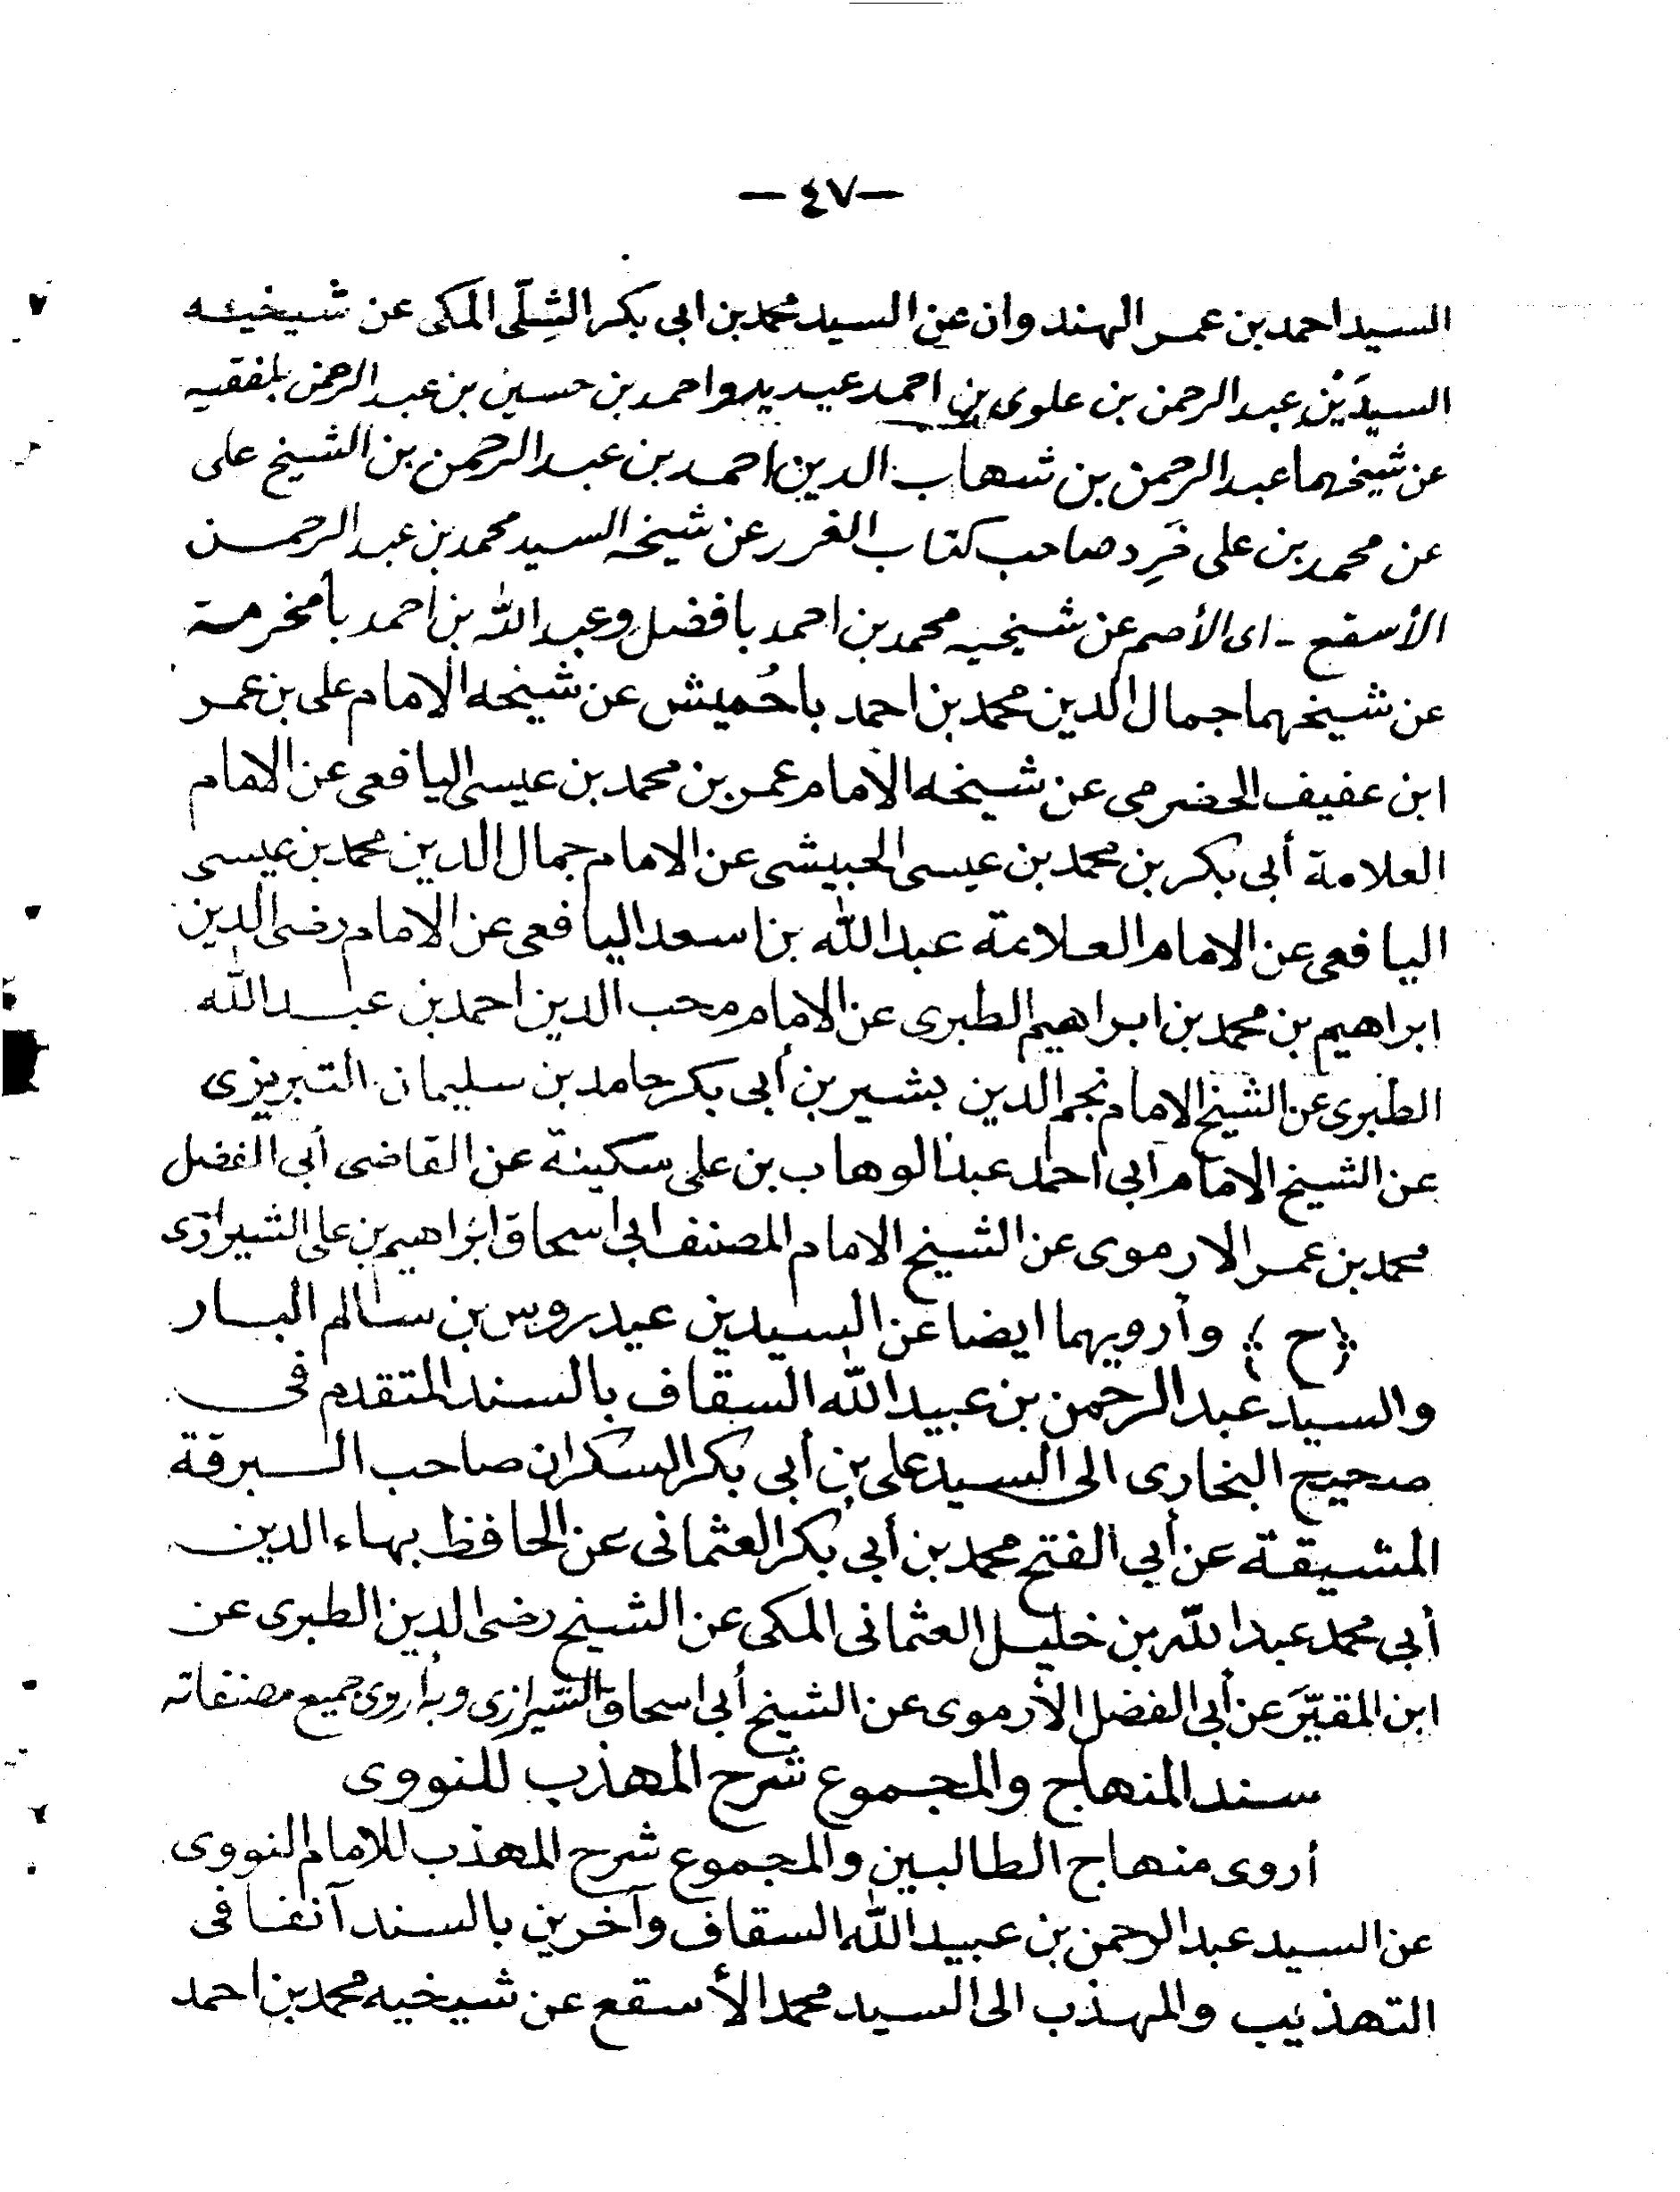 — ٤٧ —
السيد احمد بن عمر الهندوان عن السيد محمد بن ابى بكر الشِلّى المكى عن شيخيه
السيدَيْن عبد الرحمن بن علوى بن احمد عيديد واحمد بن حسين بن عبد الرحمن بلفقيه
عن شيخهما عبد الرحمن بن شهاب الدين احمد بن عبد الرحمن بن الشيخ على
عن محمد بن على خَرِد صاحب كتاب الغرر عن شيخه السيد محمد بن عبد الرحمن
الأسقع - اى الأصم عن شيخيه محمد بن احمد بافضل وعبد الله بن احمد بامخرمة
عن شيخهما جمال الدين محمد بن احمد باحُميش عن شيخه الامام على بن عمر
ابن عفيف الحضرمى عن شيخه الامام عمر بن محمد بن عيسى اليافعى عن الامام
العلامة أبى بكر بن محمد بن عيسى الحبيشى عن الامام جمال الدين محمد بن عيسى
اليافعى عن الامام العلامة عبد الله بن اسعد اليافعى عن الامام رضى الدين
ابراهيم بن محمد بن ابراهيم الطبرى عن الامام محب الدين احمد بن عبد الله
الطبرى عن الشيخ الامام نجم الدين بشير بن أبى بكر حامد بن سليمان التبريزى
عن الشيخ الامام ابى احمد عبد الوهاب بن على سكينة عن القاضى أبى الفضل
محمد بن عمر الارموى عن الشيخ الامام المصنف ابى اسحاق ابراهيم بن على الشيرازى
﴿ح﴾ وأرويهما ايضا عن السيدين عيدروس بن سالم البار
والسيد عبد الرحمن بن عبيد الله السقاف بالسند المتقدم فى
صحيح البخارى الى السيد على بن أبى بكر السكران صاحب البرقة
المشيقة عن أبي الفتح محمد بن أبى بكر العثمانى عن الحافظ بهاء الدين
أبي محمد عبد الله بن خليل العثمانى المكى عن الشيخ رضى الدين الطبرى عن
ابن المقيَّر عن أبى الفضل الأرموى عن الشيخ أبى اسحاق الشيرازى وبه أروى جميع مصنفاته
سند المنهاج والمجموع شرح المهذب للنووى
أروى منهاج الطالبين والمجموع شرح المهذب للامام النووى
عن السيد عبد الرحمن بن عبيد الله السقاف وآخرين بالسند آنفا فى
التهذيب والمهذب الى السيد محمد الأسقع عن شيخيه محمد بن احمد